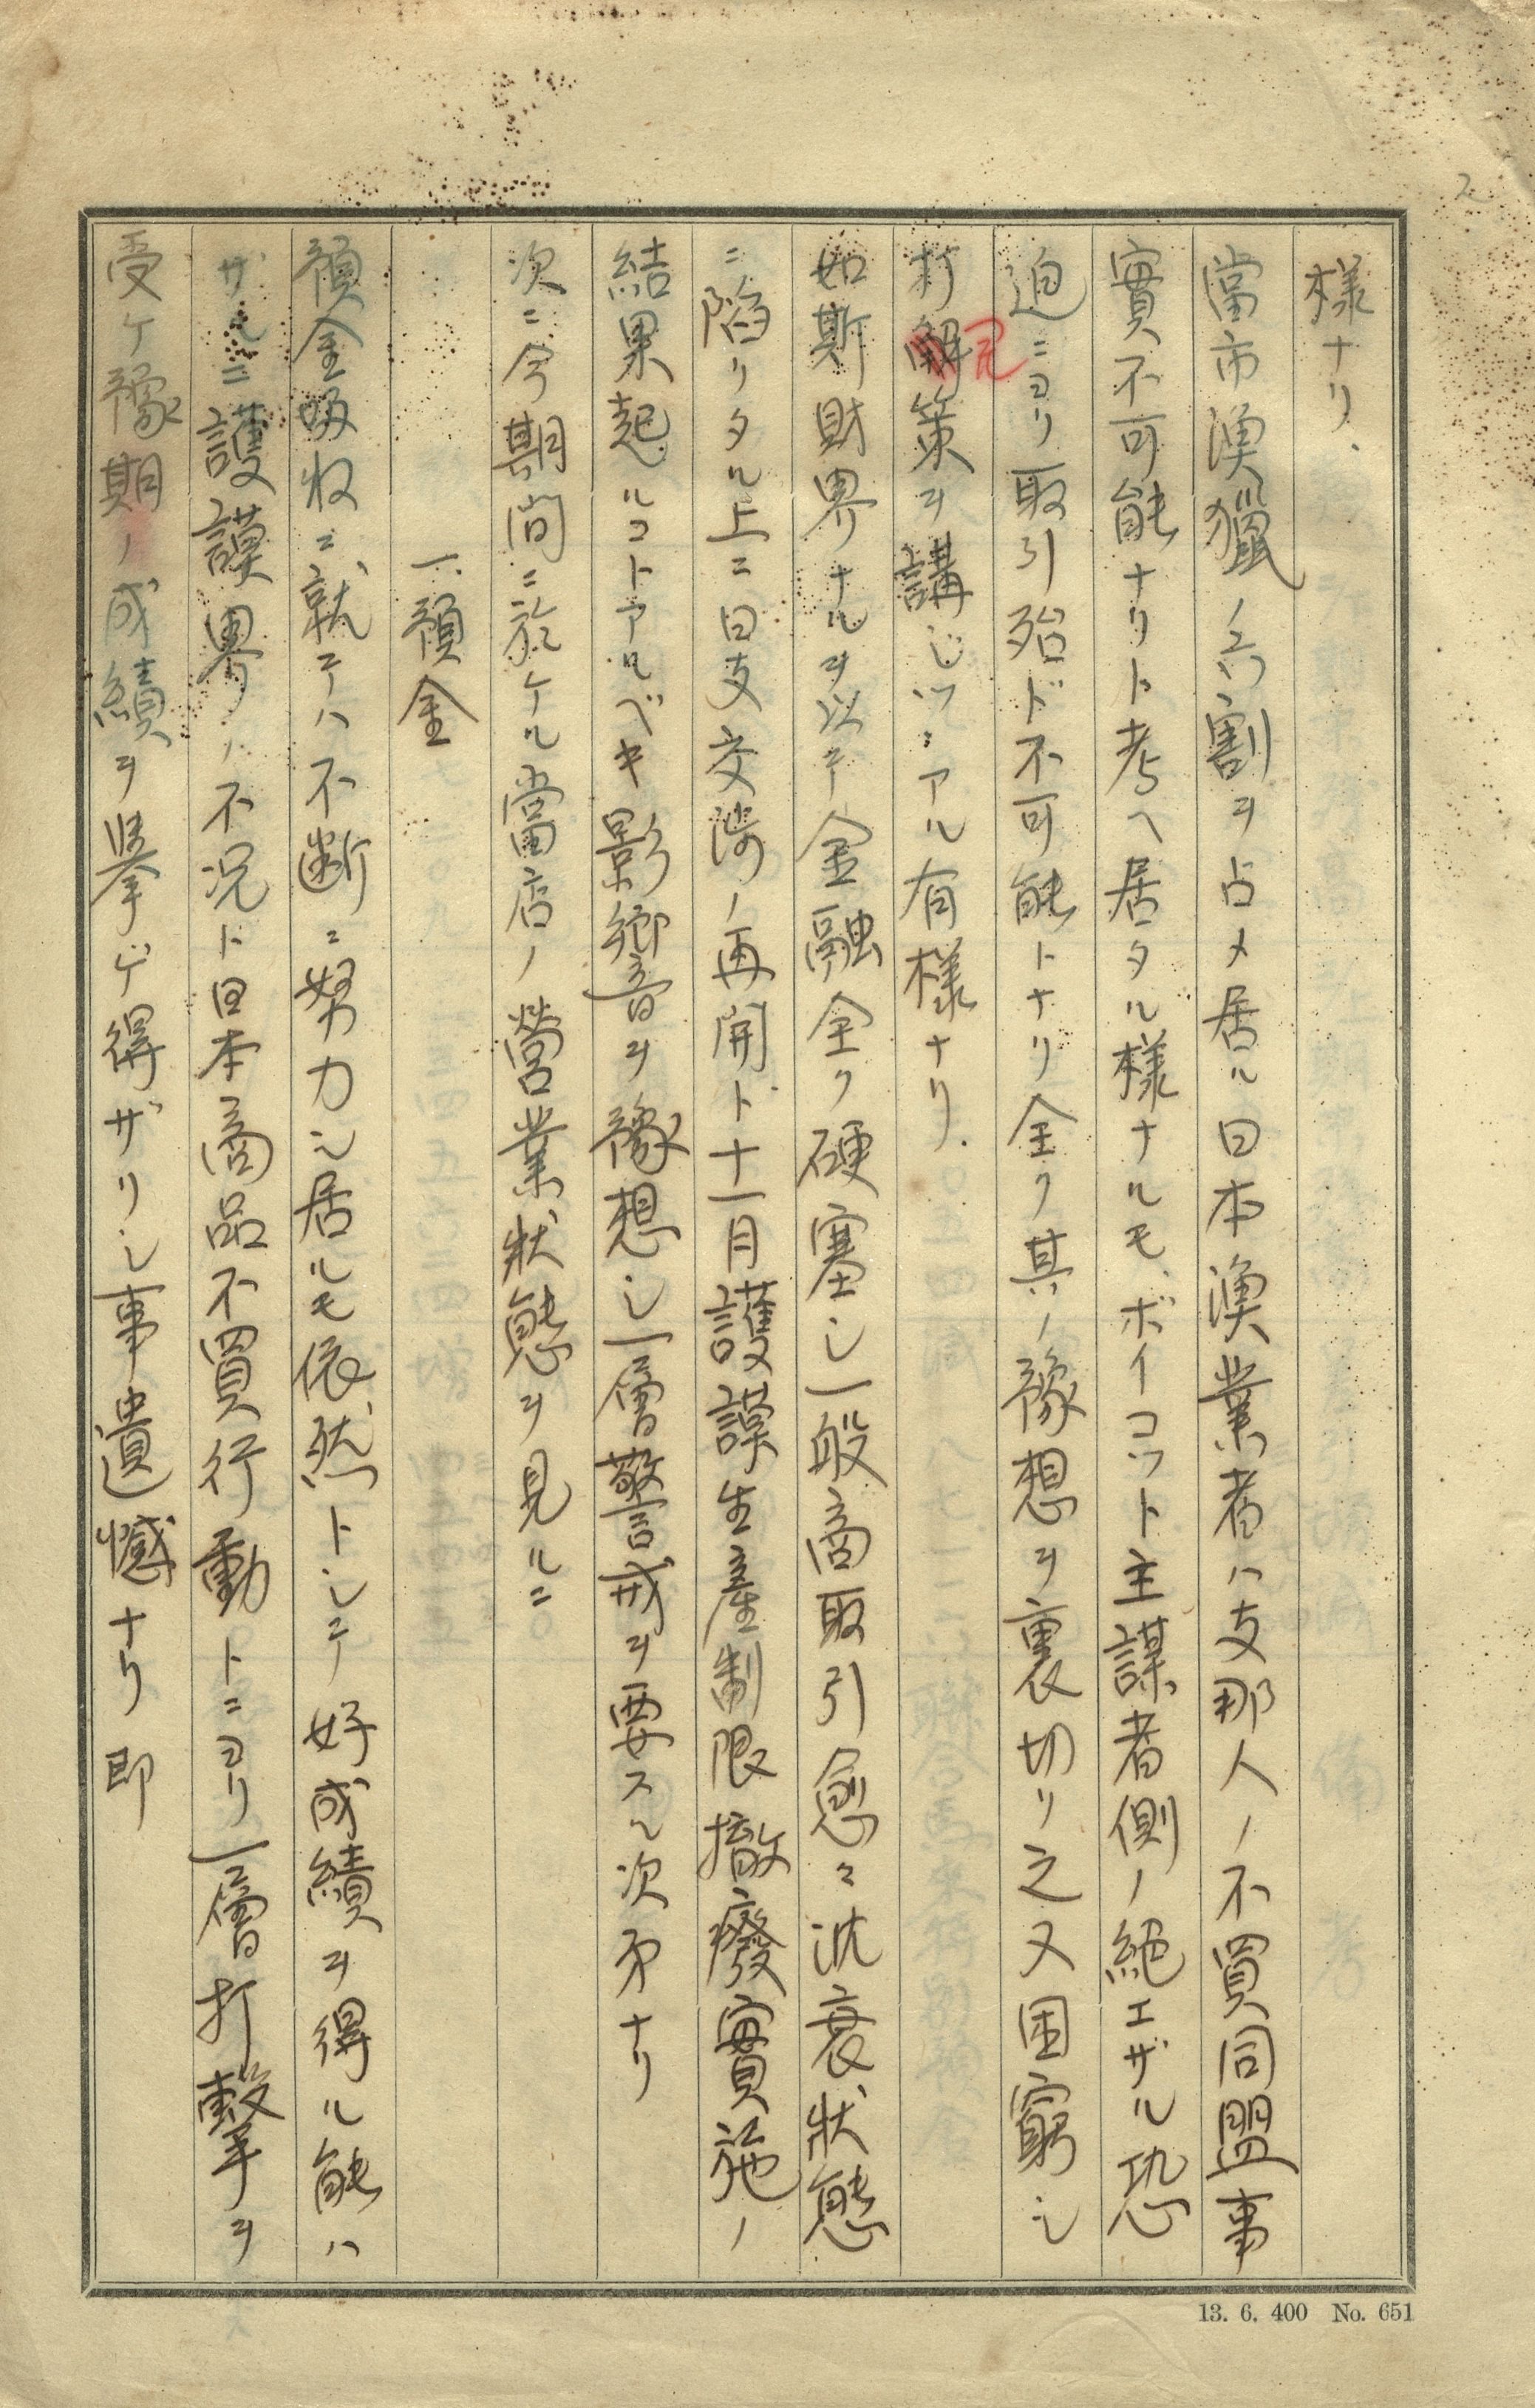 2
様ナリ、
當市漁獵ノ六割ヲ占メ居ル日本漁業者ハ支那人ノ不買同盟事
實不可能ナリト考ヘ居タル様ナルモ、ボイコット主謀者側ノ絕エザル恐
迫ニヨリ取引殆ド不可能トナリ全ク其ノ豫想ヲ裏切リ之又困窮シ
打開策ヲ講ジツヽアル有様ナリ.
如斯財界ナルヲ以テ金融全ク硬塞シ一般商取引愈々沈衰狀態
ニ陷リタル上ニ日支交渉ノ再開ト十一月護謨生產制限撤癈實施ノ
結果起ルコトアルベキ影響ヲ豫想シ一層警戒ヲ要スル次第ナリ
次ニ今期間ニ於ケル當店ノ營業狀態ヲ見ルニ
一、預金
預金吸收ニ就テハ不断ニ努力シ居ルモ依然トシテ好成績ヲ得ル能ハ
ザルニ護謨界ノ不況ト日本商品不買行動トニヨリ一層打擊ヲ
受ケ豫期ノ成績ヲ擧ゲ得ザリシ事遺憾ナリ即
13. 6. 400 No. 651